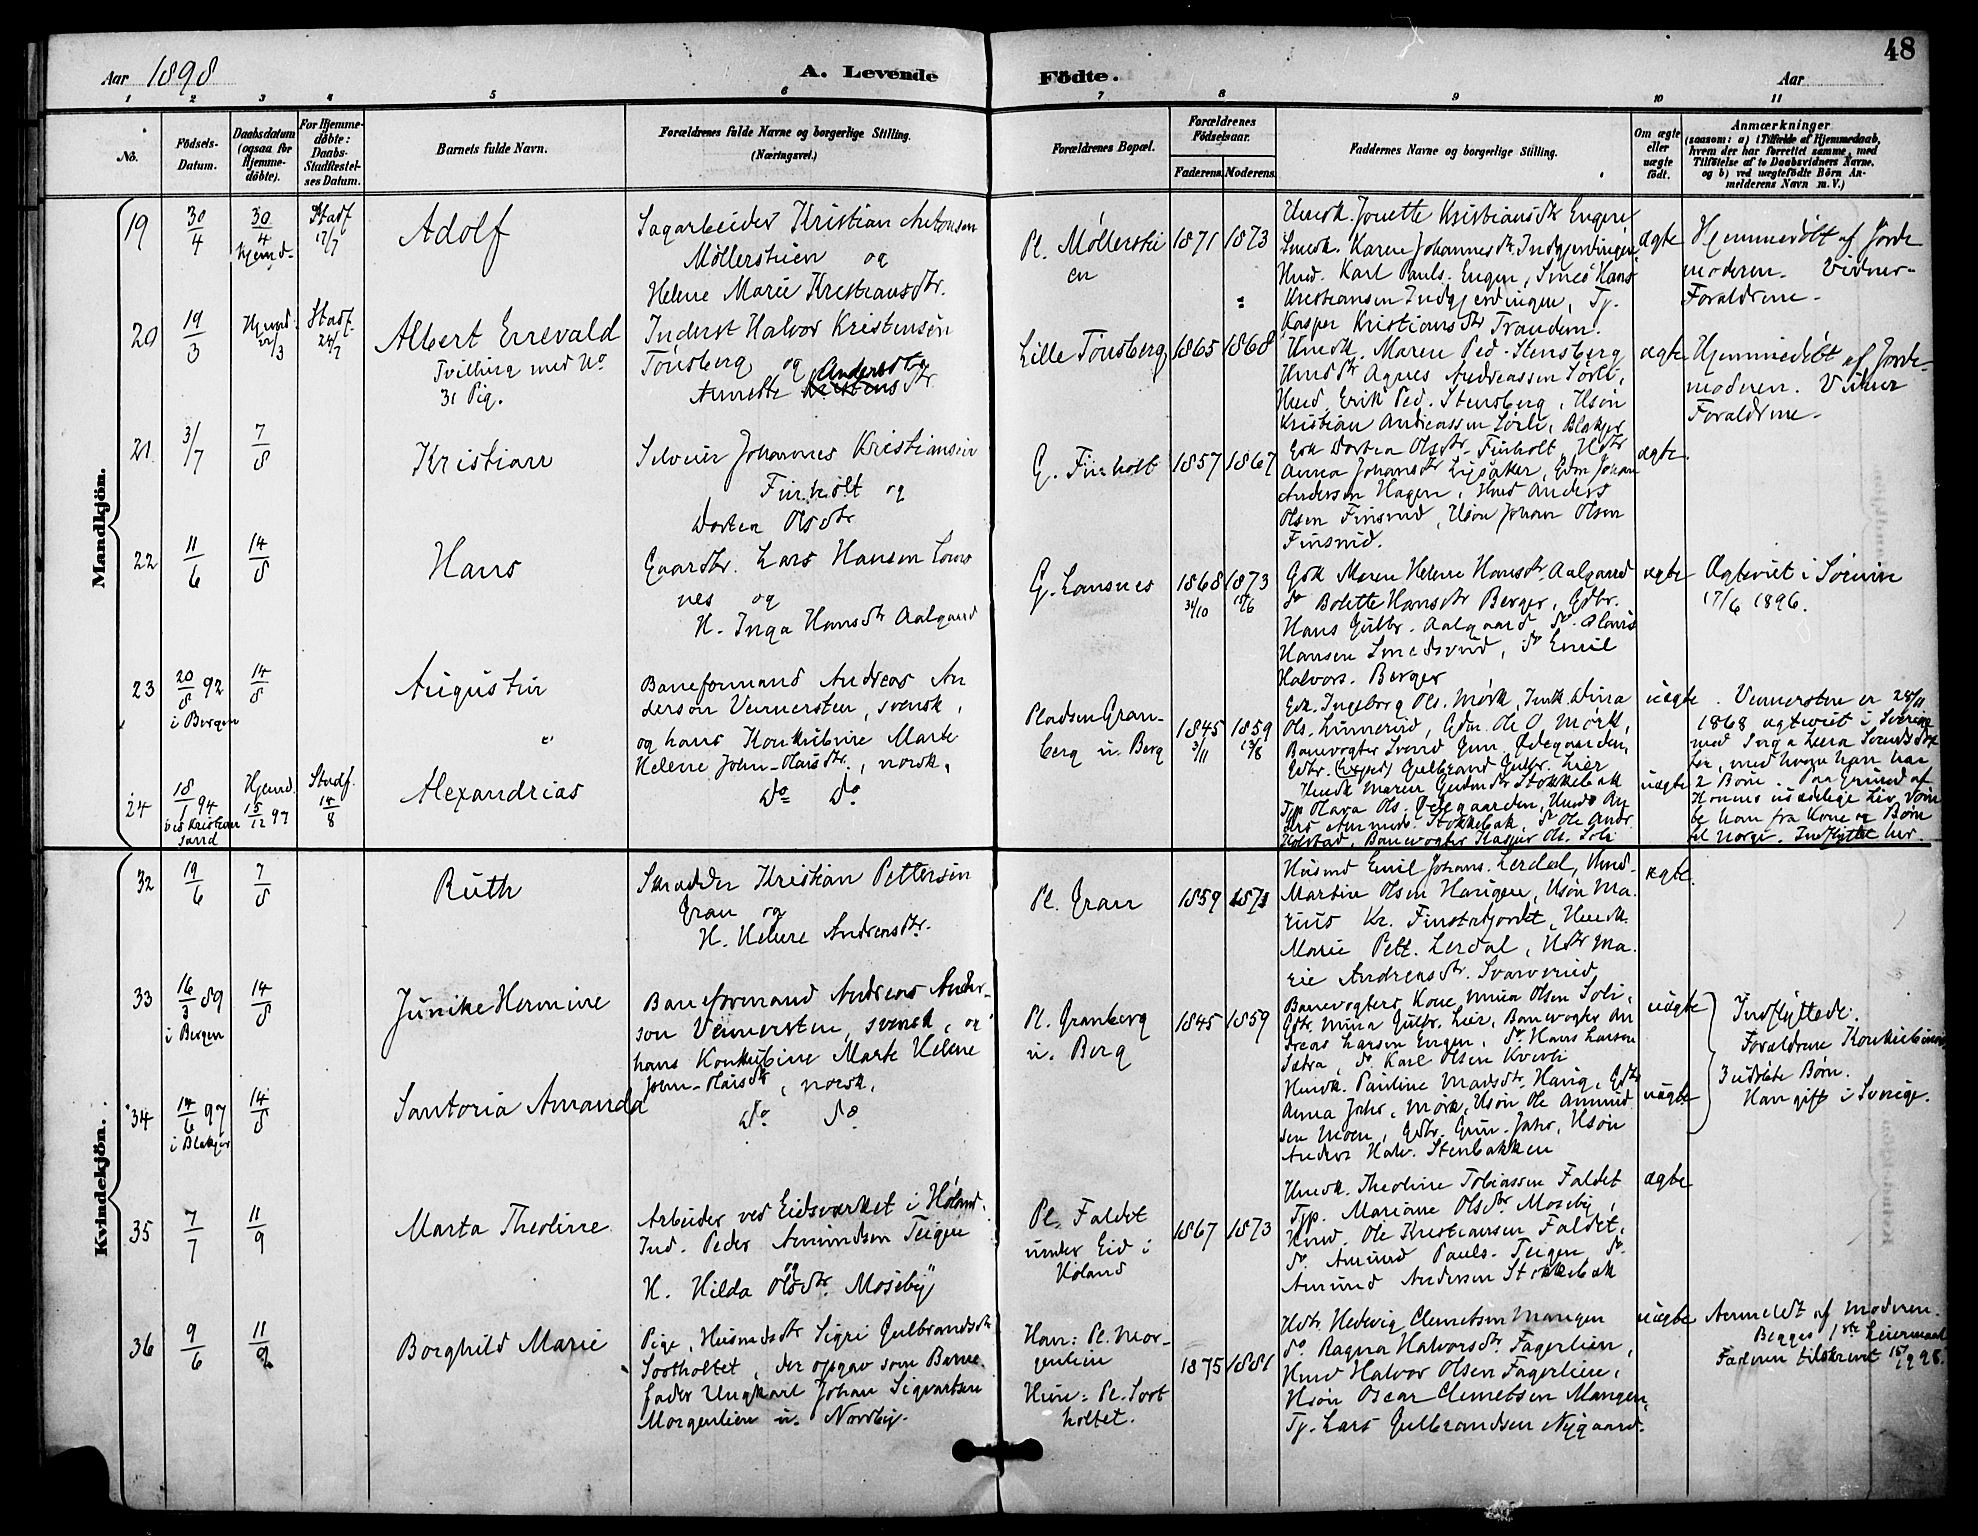 48
Aar 1898
A. Levende Födte.
Aar
1 2 3 4 5 6 7 8 9 10 11
No.
Födsels-Datum.
Daabsdatum (ogsaa for Hjemme-döbte).
For Hjemme-döbte: Daabs-Stadfæstel-ses Datum.
Barnets fulde Navn.
Forældrenes fulde Navne og borgerlige Stilling. (Næringsvei.)
Forældrenes Bopæl.
Forældrenes Födselsaar.
Faderens. Moderens.
Faddernes Navne og borgerlige Stilling.
Om ægte eller uægte födt.
Anmærkninger
(saasom: a) i Tilfælde af Hjemmedaab,
hvem der har forrettet samme, med
Tilföielse af to Daabsvidners Navne,
og b) ved uægtefödte Börn An-
melderens Navn m. V.)
Mandkjön.
19
30/4
30/4 Hjemd.
Stadf 17/7
Adolf
Sagarbeider Kristian Antonsen
Møllerstuen og
Helene Marie Kristiansdtr.
Pl. Møllerstu
en
1871 1873
Hmdk. Jonette Kristiansdtr Engen
Smedk. Karen Johannesdtr Indgjerdingen
Hmd. Karl Pauls. Engen, Smed Hans
Kristiansen Indgjerdingen, Tj.
Kasper Kristiansdtr Trandem.
ægte
Hjemmedöbt af Jorde
moderen. Vidner-
Forældrene.
20
19/3
Hjemd. 22/3
Stadf. 24/7
Albert Errevald
Tvilling med No
31 Pig.
Inderst Halvor Kristensen
Tönsberg og Andersdtr
Annette Kristensdtr
Lille Tönsberg
1865 1868
Hmdk. Maren Ped. Stensberg
Hmdsdtr Agnes Andreassen Sörli,
Hmd Erik Ped. Stensberg, Hsön
Kristian Andreassen Sörli, Blakjer
ægte
Hjemmedöbt af Jorde-
moderen. Vidner
Forældrene.
21
3/7
7/8
Kristian
Selveier Johannes Kristiansen
Finholt og
Dorthea Olsdtr
G. Finholt
1857 1867
Gdk Dorthea Olsdtr. Finholt, Hdtr
Anna Johansdtr Ligsaker, Gdm Johan
Andersen Hagen, Hmd Anders
Olsen Finsrud, Hsön Johan Olsen
Finsrud.
ægte
22
11/6
14/8
Hans
Gaardbr. Lars Hansen Lows
nes og
H. Inga Hansdtr Aalgaard
G. Lowsnes
1868 1873
Gdk Maren Helene Hansdtr. Aalgaard
do Bolette Hansdtr Berger, Gdbr.
Hans Gulbr. Aalgaard do Olaves
Hansen Smedsrud, do Emil
Halvors. Berger
ægte
Ægteviet i Sörum
17/6 1896.
23
20/8 92
i Bergen
14/8
Augustin
Baneformand Andreas An
derson Vennersten, svensk,
og hans Konkubine Marte
Helene John-Olaisdtr., norsk,
Pladsen Gran-
berg u. Berg
1845 3/11
1859 13/8
Gdk. Ingeborg Ols. Mørk, Indk Dina
Ols. Lunnerud, Gdm. Ole O. Mørk,
Banevogter Svend Gun. Ødegaarden,
Gdbr. Gulbrand Gulbr. Lier
uægte
Vennersten er 28/11
1868 ægteviet i Sverige
med Inga Lena Svendsdot
ter, med hvem han har
2 Börn. Paa Grund af
Konens usædelige Liv, röm
te han fra Kone og Börn
til Norge. Indflyttet her.
24
18/1 94
ved Kristian
sand
Hjemd. 15/12 97
Stadf. 14/8
Alexandrias
do do
Hmdk Maren Gudmdtr Stokkebæk
Tjp Olava Ols. Ødegaarden, Hmd An
ders Ammund. Stokkebæk, do Ole Andr.
Holstad, Banevogter Kasper Ols. Soli
uægte
Kvindekjön.
32
19/6
7/8
Ruth
Skrædder Kristian Pettersen
Gran og
H. Helene Andreasdtr.
Pl. Gran
1859 1871
Husmd Emil Johans. Lerdal, Hmd.
Martin Olsen Haugen, Hsön Ma
rius Kr. Finstafjordet, Hmdk.
Marie Pett. Lerdal, Hdtr Ma
rie Andreasdtr. Svarverud
ægte.
33
16/3 89
i Bergen
14/8
Junike Hermine
Baneformand Andreas Ander-
son Vennersten, svensk, og
hans Konkubine Marte Helene
John-Olaisdtr, norsk.
Pl. Granberg
u. Berg
1845 1859
Banevogters Kone Mina Olsen Soli,
Gdtr. Mina Gulbr. Lier, Banevogter An
dreas Larsen Engen, do Hans Larsen
Sætra, do Karl Olsen Kverli
uægte
Indflyttede.
Forældrene Konkubinat.
3 udöbte Börn.
Han gift i Sverige.
34
14/6 97
i Blakjer
14/8
Santoria Amanda
do do
Hmdk. Pauline Madsdtr. Haug, Gdtr
Anna Johs. Mørk, Hsön Ole Ammund
sen Moen, Gdbr. Gun. Johs, Hsön
Anders Halv. Stenbakken
uægte
35
7/7
11/9
Marta Theoline
Arbeider ved Eidsverket i Höland.
Ind. Peder Amundsen Teigen
og
H. Hilda Olsdtr. Moseby
Pl. Faldet
under Eid i
Höland
1867 1873
Hmdk. Theoline Tobiassen Faldet
Tjp. Mariane Olsdtr Moseby,
Hmd. Ole Kristiansen Faldet,
do. Amund Pauls. Teigen, do.
Amund Andersen Stokkebæk
ægte
36
9/6
11/9
Borghild Marie
Pige, Husmdsdtr Sigri Gulbrandsdtr
Sortholtet, der opgav som Barne
fader Ungkarl Johan Sigvartsen
Morgenlien u. Nordby.
Han: Pl. Mor-
genlien
Hun: Pl. Sort
holtet.
1875 1881
Hdtr Hedvig Clemetsen Mangen
do. Ragna Halvorsdtr. Fagerlien,
Hmd Halvor Olsen Fagerlien,
Hsön Oscar Clemetsen Mangen,
Tj. Lars Gulbrandsen Nygaard.
uægte
Anmeldt af Moderen.
Begges 1ste Leiermaal
Faderen tilskrevet